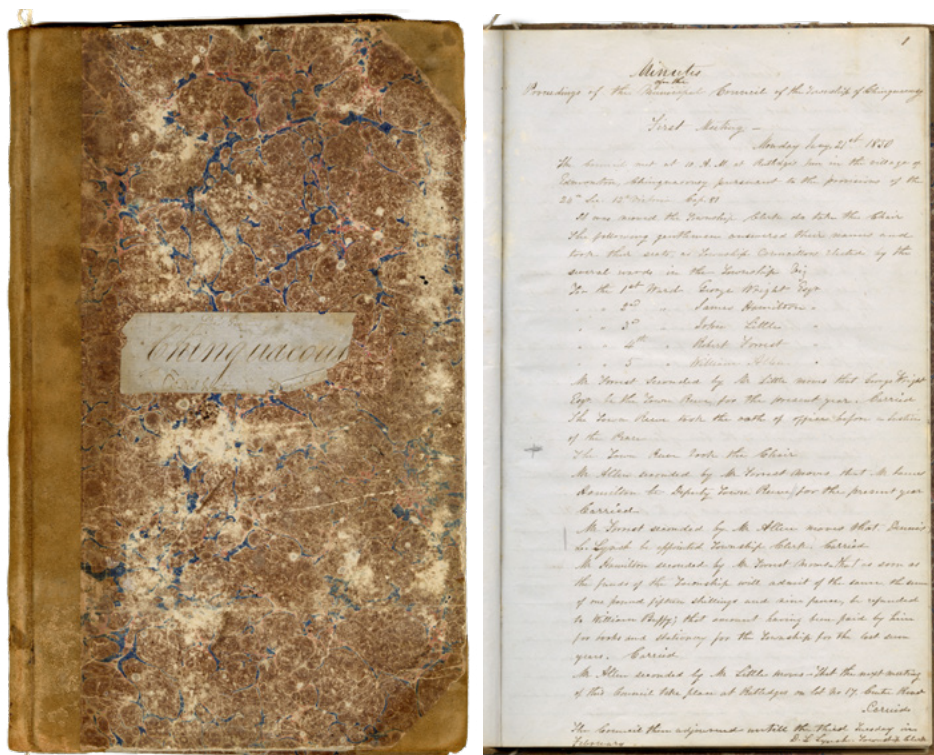 Chinguacousy
1
Minutes
on the
Proceedings of the Municipal Council of the Township of Chinguacousy
First Meeting —
Monday Jany 21st 1850
The Council met at 10 A.M. at Inn in the village of
Edmonton, Chinguacousy pursuant to the provisions of the
24th Sec 12th Victoria Cap 81
It was moved the Township Clerk do take the Chair
The following gentlemen answered their names and
took their seats as Township Councillors elected by the
several wards in the Township viz
For the 1st Ward George Wright Esqr
" " 2nd " James Hamilton "
" " 3d " John Little "
" " 4th " Robert Forrest "
" " 5 " William Allen "
Mr Forrest seconded by Mr Little moves that George Wright
Esqr be the Town Reeve for the present year. Carried
The Town Reeve took the oath of office before a Justice
of the Peace
The Town Reeve took the Chair
Mr Allen seconded by Mr Forrest moves that Mr James
Hamilton be Deputy Town Reeve for the present year
Carried
Mr Forrest seconded by Mr Allen moves that Dennis
L. Lynch be appointed Township Clerk. Carried
Mr Hamilton seconded by Mr Forrest moves that as soon as
the funds of the Township will admit of the same the sum
of one pound fifteen shillings and nine pence, be refunded
to William that amount having been paid by him
for books and stationery for the Township for the last seven
years. Carried
Mr Allen seconded by Mr Little moves that the next meeting
of this Council take place at on lot No 17, Centre Road
Carried
The Council then adjourned until the third Tuesday in
February. D. L. Lynch Township Clerk